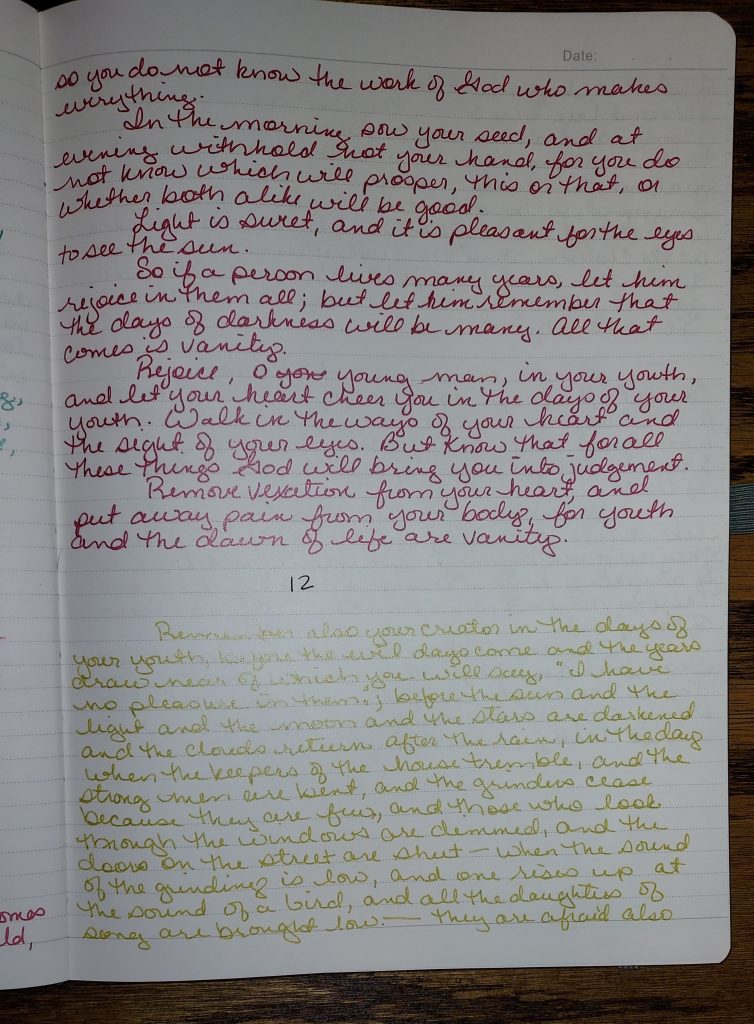 Date:
so you do not know the work of God who makes
everything.
In the morning sow your seed, and at
evening withhold not your hand, for you do
not know which will prosper, this or that, or
whether both alike will be good.
Light is suret, and it is pleasant for the eyes
to see the sun.
So if a person lives many years, let him
rejoice in them all; but let him remember that
the days of darkness will be many. All that
comes is vanity.
Rejoice, O young man, in your youth,
and let your heart cheer you in the days of your
youth. Walk in the ways of your heart and
the sight of your eyes. But know that for all
these things God will bring you into judgement.
Remove vexation from your heart, and
put away pain from your body, for youth
and the dawn of life are vanity.
12
Remember also your creator in the days of
your youth, before the evil days come and the years
draw near of which you will say, "I have
no pleasure in them"; before the sun and the
light and the moon and the stars are darkened
and the clouds return after the rain, in the day
when the keepers of the house tremble, and the
strong men are bent, and the grinders cease
because they are few, and those who look
through the windows are dimmed, and the
doors on the street are shut - when the sound
of the grinding is low, and one rises up at
the sound of a bird, and all the daughters of
song are brought low. — they are afraid also
omes
ld,